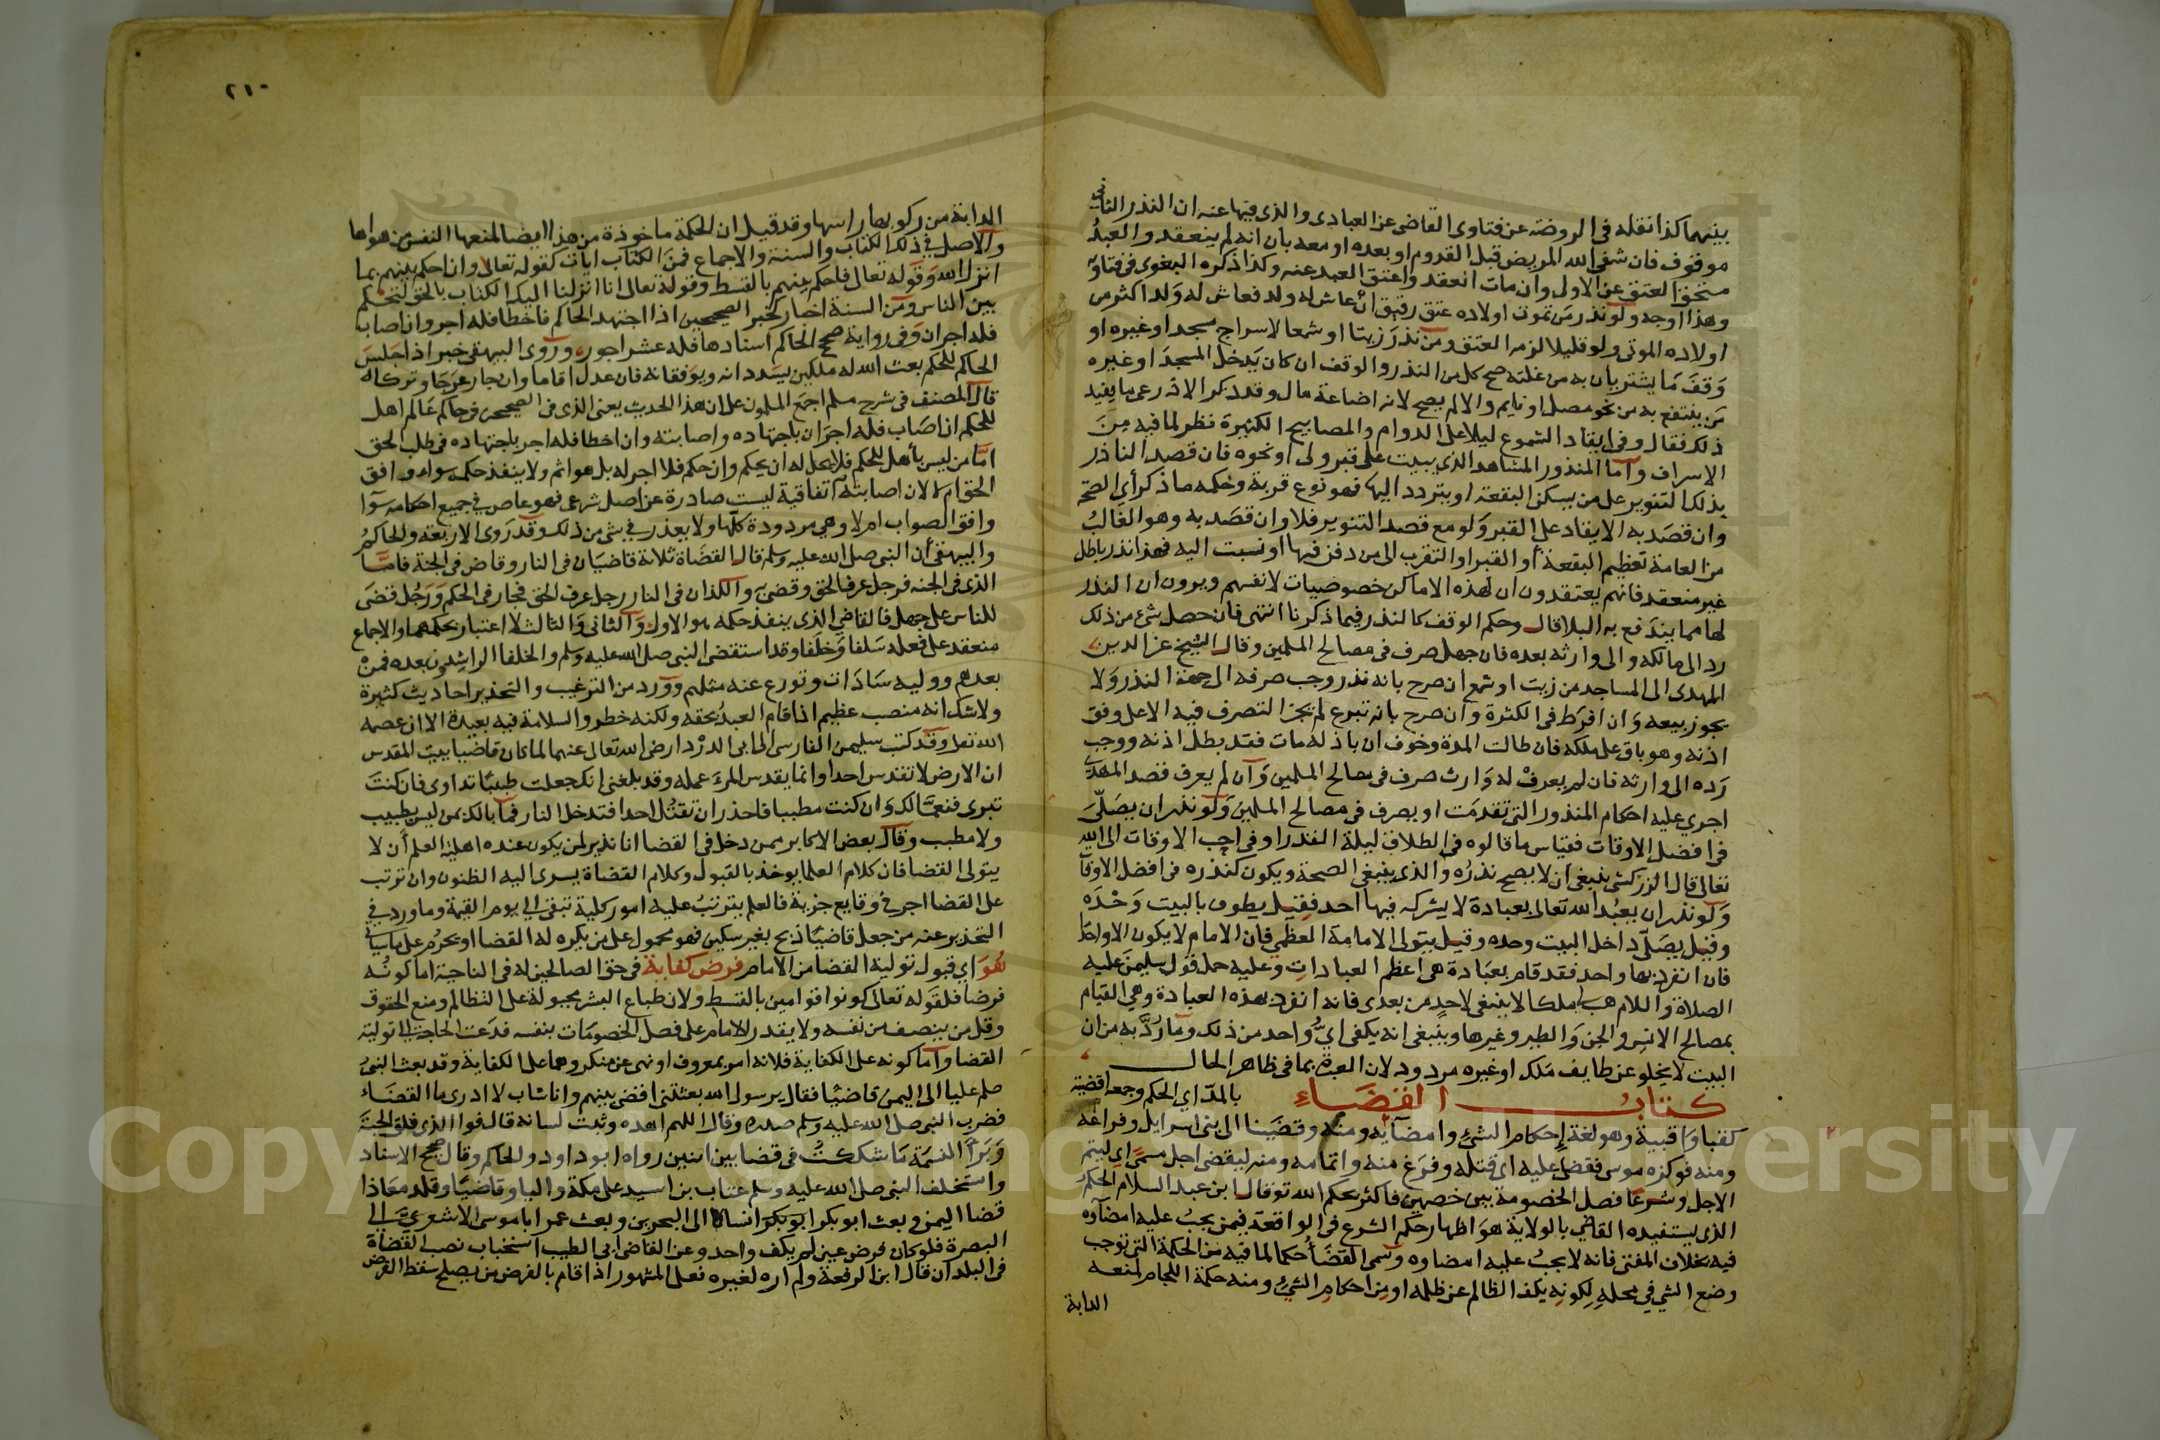 بينهما كذا نقله في الروضة عن فتاوى القاضي عن العبادى والذى فيها عنه ان النذر الثاني
موقوف فان شفى الله المريض قبل القدوم او بعده او معه بان انه لم ينعقد والعبد
مستحق العتق عن الاول وان مات انعقد واعتق العبد عنه وكذا ذكره البغوى فى فتاويه
وهذا اوجه ولو نذر من تموت اولاده عتق رقيق ان عاش له ولد فعاش له ولد اكثر من
اولاده الموتى ولو قليلا لزمه العتق ومن نذر زيتا او شمعا لاسراج مسجد او غيره او
وقف ما يشتريان به من غلته صح كل من النذر والوقف ان كان يدخل المسجد او غيره
من ينتفع به من نحو مصل او نايم والا لم يصح لانه اضاعة مال وقد ذكر الاذرعى ما يفيد
ذلك فقال وفى ايقاد الشموع ليلا على الدوام والمصابيح الكثيرة نظر لما فيه من
الاسراف واما المنذور للمشاهد الذى يبيت على قبر ولى او نحوه فان قصد الناذر
بذلك التنوير على من يسكن البقعة او يتردد اليها فهو نوع قربة وحكمه ما ذكر أي الصحة
وان قصد به الايقاد على القبر ولو مع قصد التنوير فلا وان قصد به وهو الغالب
من العامة تعظيم البقعة أو القبر او التقرب الى من دفن فيها او نسبت اليه فهذا نذر باطل
غير منعقد فانهم يعتقدون ان لهذه الاماكن خصوصيات لا نفسهم ويرون ان النذر
لها مما يندفع به البلا قال وحكم الوقف كالنذر فيما ذكرنا انتهى فان حصل شئ من ذلك
رد الى مالكه والى وارثه بعده فان جهل صرف فى مصالح المسلمين وقال الشيخ عز الدين
المهدى الى المساجد من زيت او شمع ان صرح بانه نذر وجب صرفه الى جهة النذر ولا
يجوز بيعه وان افرط فى الكثرة وان صرح بانه تبرع لم يجز التصرف فيه الا على وفق
اذنه وهو باق على ملكه فان طالت المدة وخوف ان باذله مات فقد بطل اذنه ووجب
رده الى وارثه فان لم يعرف له وارث صرف فى مصالح المسلمين وان لم يعرف قصد المهدي
اجري عليه احكام المنذور التى تقدمت او يصرف فى مصالح المسلمين ولو نذر ان يصلى
فى افضل الاوقات فقياس ما قالوه فى الطلاق ليلة القدر او فى احب الاوقات الى الله
تعالى قال الزركشى ينبغى ان لا يصح نذره والذى ينبغى الصحة ويكون كنذره فى افضل الاوقات
ولو نذر ان يعبد الله تعالى بعبادة لا يشركه فيها احد فقيل يطوف بالبيت وحده
وقيل يصلى داخل البيت وحده وقيل يتولى الامامة العظمى فان الامام لا يكون الا واحدا
فان انفرد بها واحد فقد قام بعبادة هى اعظم العبادات وعليه حمل قول سليمن عليه
الصلاة والسلام هب لى ملكا لا ينبغى لاحد من بعدى فانه انفرد بهذه العبادة وهى القيام
بمصالح الانس والجن والطير وغيرها وينبغى انه يكفى اي واحد من ذلك وما رد به من ان
البيت لا يخلو عن طايف ملك او غيره مردود لان العبرة بما فى ظاهر الحال
كتاب القضاء بالمد اي الحكم وجمعه اقضية
كقبا واقبية وهو لغة إحكام الشئ وامضايه ومنه وقضينا الى بنى اسرايل وفراغه
ومنه فوكزه موسى فقضى عليه اى قتله وفرغ منه واتمامه ومنه ليقضى اجل مسمى اى ليتم
الاجل وشرعا فصل الخصومة بين خصمين فاكثر بحكم الله تعو قال ابن عبد السلام الحكم
الذى يستفيده القاضي بالولاية هو اظهار حكم الشرع فى الواقعة فيمن يجب عليه امضاوه
فيه بخلاف المفتى فانه لا يجب عليه امضاوه وسمى القضا حكما لما فيه من الحكمة التى توجب
وضع الشي في محله لكونه يكف الظالم عن ظلمه او من احكام الشئ ومنه حكمة اللجام لمنعه
الدابة
٢١٠
الدابة من ركوبها راسها وقد قيل ان الحكمة ماخوذة من هذا ايضا لمنعها النفس من هواها
والاصل في ذلك الكتاب والسنة والاجماع فمن الكتاب ايات كقوله تعالى وان احكم بينهم بما
انزل الله وقوله تعالى فاحكم بينهم بالقسط وقوله تعالى انا انزلنا اليك الكتاب بالحق لتحكم
بين الناس ومن السنة اخبار كخبر الصحيحين اذا اجتهد الحاكم فاخطا فله اجر وان اصاب
فله اجران وفى رواية صحح الحاكم اسنادها فله عشر اجور وروى البيهقى خبر اذا جلس
الحاكم للحكم بعث الله له ملكين يسددانه ويوفقانه فان عدل اقاما وان جار عرجا وتركاه
قال المصنف فى شرح مسلم اجمع المسلمون على ان هذا الحديث يعنى الذى فى الصحيحين فى حاكم عالم اهل
للحكم ان اصاب فله اجران باجتهاده واصابته وان اخطا فله اجر باجتهاده فى طلب الحق
اما من ليس بأهل للحكم فلا يحل له ان يحكم وان حكم فلا اجر له بل هو اثم ولا ينفذ حكمه سواء وافق
الحق ام لا لان اصابته اتفاقية ليست صادرة عن اصل شرعى فهو عاص في جميع احكامه سوآ
وافق الصواب ام لا وهي مردودة كلها ولا يعذر في شى من ذلك وقد روى الاربعة والحاكم
والبيهقى أن النبى صلى الله عليه وسلم قال القضاة ثلاثة قاضيان فى النار وقاض فى الجنة فاما
الذى فى الجنه فرجل عرف الحق وقضى به والكذان فى النار رجل عرف الحق فجار فى الحكم ورجل قضى
للناس على جهل فالقاضي الذى ينفذ حكمه هو الاول والثانى والثالث لا اعتبار بحكمهما والاجماع
منعقد على فعله سلفا وخلفا وقد استقضى النبى صلى الله عليه وسلم والخلفا الراشدون بعده فمن
بعدهم ووليه سادات وتورع عنه مثلهم وورد من الترغيب والتحذير احاديث كثيرة
ولا شك انه منصب عظيم اذا قام العبد بحقه ولكنه خطر والسلامة فيه بعيدة الا ان عصمه
الله تعا وقد كتب سليمن الفارسى الى ابى الدردا رضى الله تعالى عنهما لما كان قاضيا ببيت المقدس
ان الارض لا تقدس احدا وانما يقدس المرء عمله وقد بلغنى انك جعلت طبيبا تداوى فان كنت
تبرى فنعما لك وان كنت مطببا فاحذر ان تقتل احدا فتدخل النار فما بالك بمن ليس بطبيب
ولا مطبب وقال بعض الاكابر ممن دخل فى القضا انا نذير لمن يكون عنده اهلية العلم أن لا
يتولى القضا فان كلام العلما يوخذ بالقبول وكلام القضاة يسرى اليه الظنون وان ترتب
على القضا اجر في وقايع جزية فالعلم يترتب عليه امور كلية تبقى الى يوم القيمة وما ورد في
التحذير عنه من جعل قاضيا ذبح بغير سكين فهو محمول على من يكره له القضا او يحرم على ما ياتى
هو اي قبول تولية القضا من الامام فرض كفاية فى حق الصالحين له فى الناحية اما كونه
فرضا فلقوله تعالى كونوا قوامين بالقسط ولان طباع البشر مجبولة على التظالم ومنع الحقوق
وقل من ينصف من نفسه ولا يقدر الامام على فصل الخصومات بنفسه فدعت الحاجة الى تولية
القضا واما كونه على الكفاية فلانه امر بمعروف او نهى عن منكر وهما على الكفاية وقد بعث النبى
صلم عليا الى اليمن قاضيا فقال يرسول الله بعثتنى اقضى بينهم وانا شاب لا ادرى ما القضاء
فضرب النبى صلى الله عليه وسلم صدره وقال اللهم اهده وثبت لسانه قال فوا الذى فلق الحبة
وبرا النسمة ما شككت فى قضا بين اثنين رواه ابو داود والحاكم وقال صحيح الاسناد
واستخلف النبى صلى الله عليه وسلم عتاب بن اسيد على مكة واليا وقاضيا وقلد معاذا
قضا اليمن وبعث ابو بكر انسا الى البحرين وبعث عمر ابا موسى الاشعري الى
البصرة فلو كان فرض عين لم يكف واحد وعن القاضى ابى الطيب استحباب نصب القضاة
فى البلدان قال ابن الرفعة ولم اره لغيره فعلى المشهور اذا قام بالفرض من يصلح سقط الفرض
Copyright © King Saud University